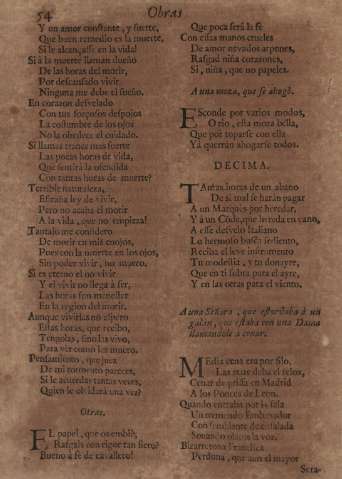 54 Obras
Y un amor constante, y fuerte,
Que buen remedio es la muerte,
Si le alcançasse en la vida!
Si à la muerte llaman sueño
De las horas del morir,
Por descansado vivir
Ninguna me debe el sueño.
En coraçon desvelado
Con sus forçosos despojos
La costumbre de los ojos
No la obedece el cuidado.
Si llamas trance mas fuerte
Las pocas horas de vida,
Que sentirà la
Con tantas horas de muerte?
Terrible naturaleza,
Estraña ley de vivir,
Pero no acaba el morir
A la vida, que no empieza!
Tantas me considero
De morir en mis enojos,
Pues con la muerte en los ojos,
Sin poder vivir, me muero.
Si es eterno el no vivir
Y el vivir no llega à ser,
Las horas son
En la region del morir.
Aunque vivirlas no espero
Estas horas, que recibo,
Tengolas, sino las vivo,
Para ver como las muero.
Pensamiento, que juez
De mi tormento pareces,
Si le acuerdas tantas vezes,
Quien le olvidarà una vez?
Otras.
EL papel, que os embiè,
Rasgais con rigor tan fiero?
Bueno à fè de cavallero!
Que poca serà la fè
Con essas manos crueles
De amor nevados arpones,
Rasgad niña coraçones,
Si, niña, que no papeles.
A una moza, que se ahogò.
EScõnde por varios modos,
O rio, esta moza bella,
Que por toparse con ella
Yà querràn ahogarse todos.
DECIMA.
TAntas horas de un abano
De si mal se haràn pagar
A un Marquès por heredar,
Y à un Còde, que hereda en vano,
A esse desvelo Italiano
Lo hermoso basta
Reciba el leve instrumento
Tu modestia, y tu donayre,
Que en ti sobra para el ayre,
Y en las otras para el viento.
A una Señora, que estorbaba à un
galàn, que estaba con una Dama
llamandole à cenar.
MEdia cena era por filo,
Las doze daba el relox,
Cenar de prisa en Madrid
A los Ponces de Leon.
Quando entraba por la sala
Un tremendo Embaxador
Con semblante de ensalada
Sonando oidos la voz.
Bizarretona Francisca
Perdona, que aun el mayor
Sera-